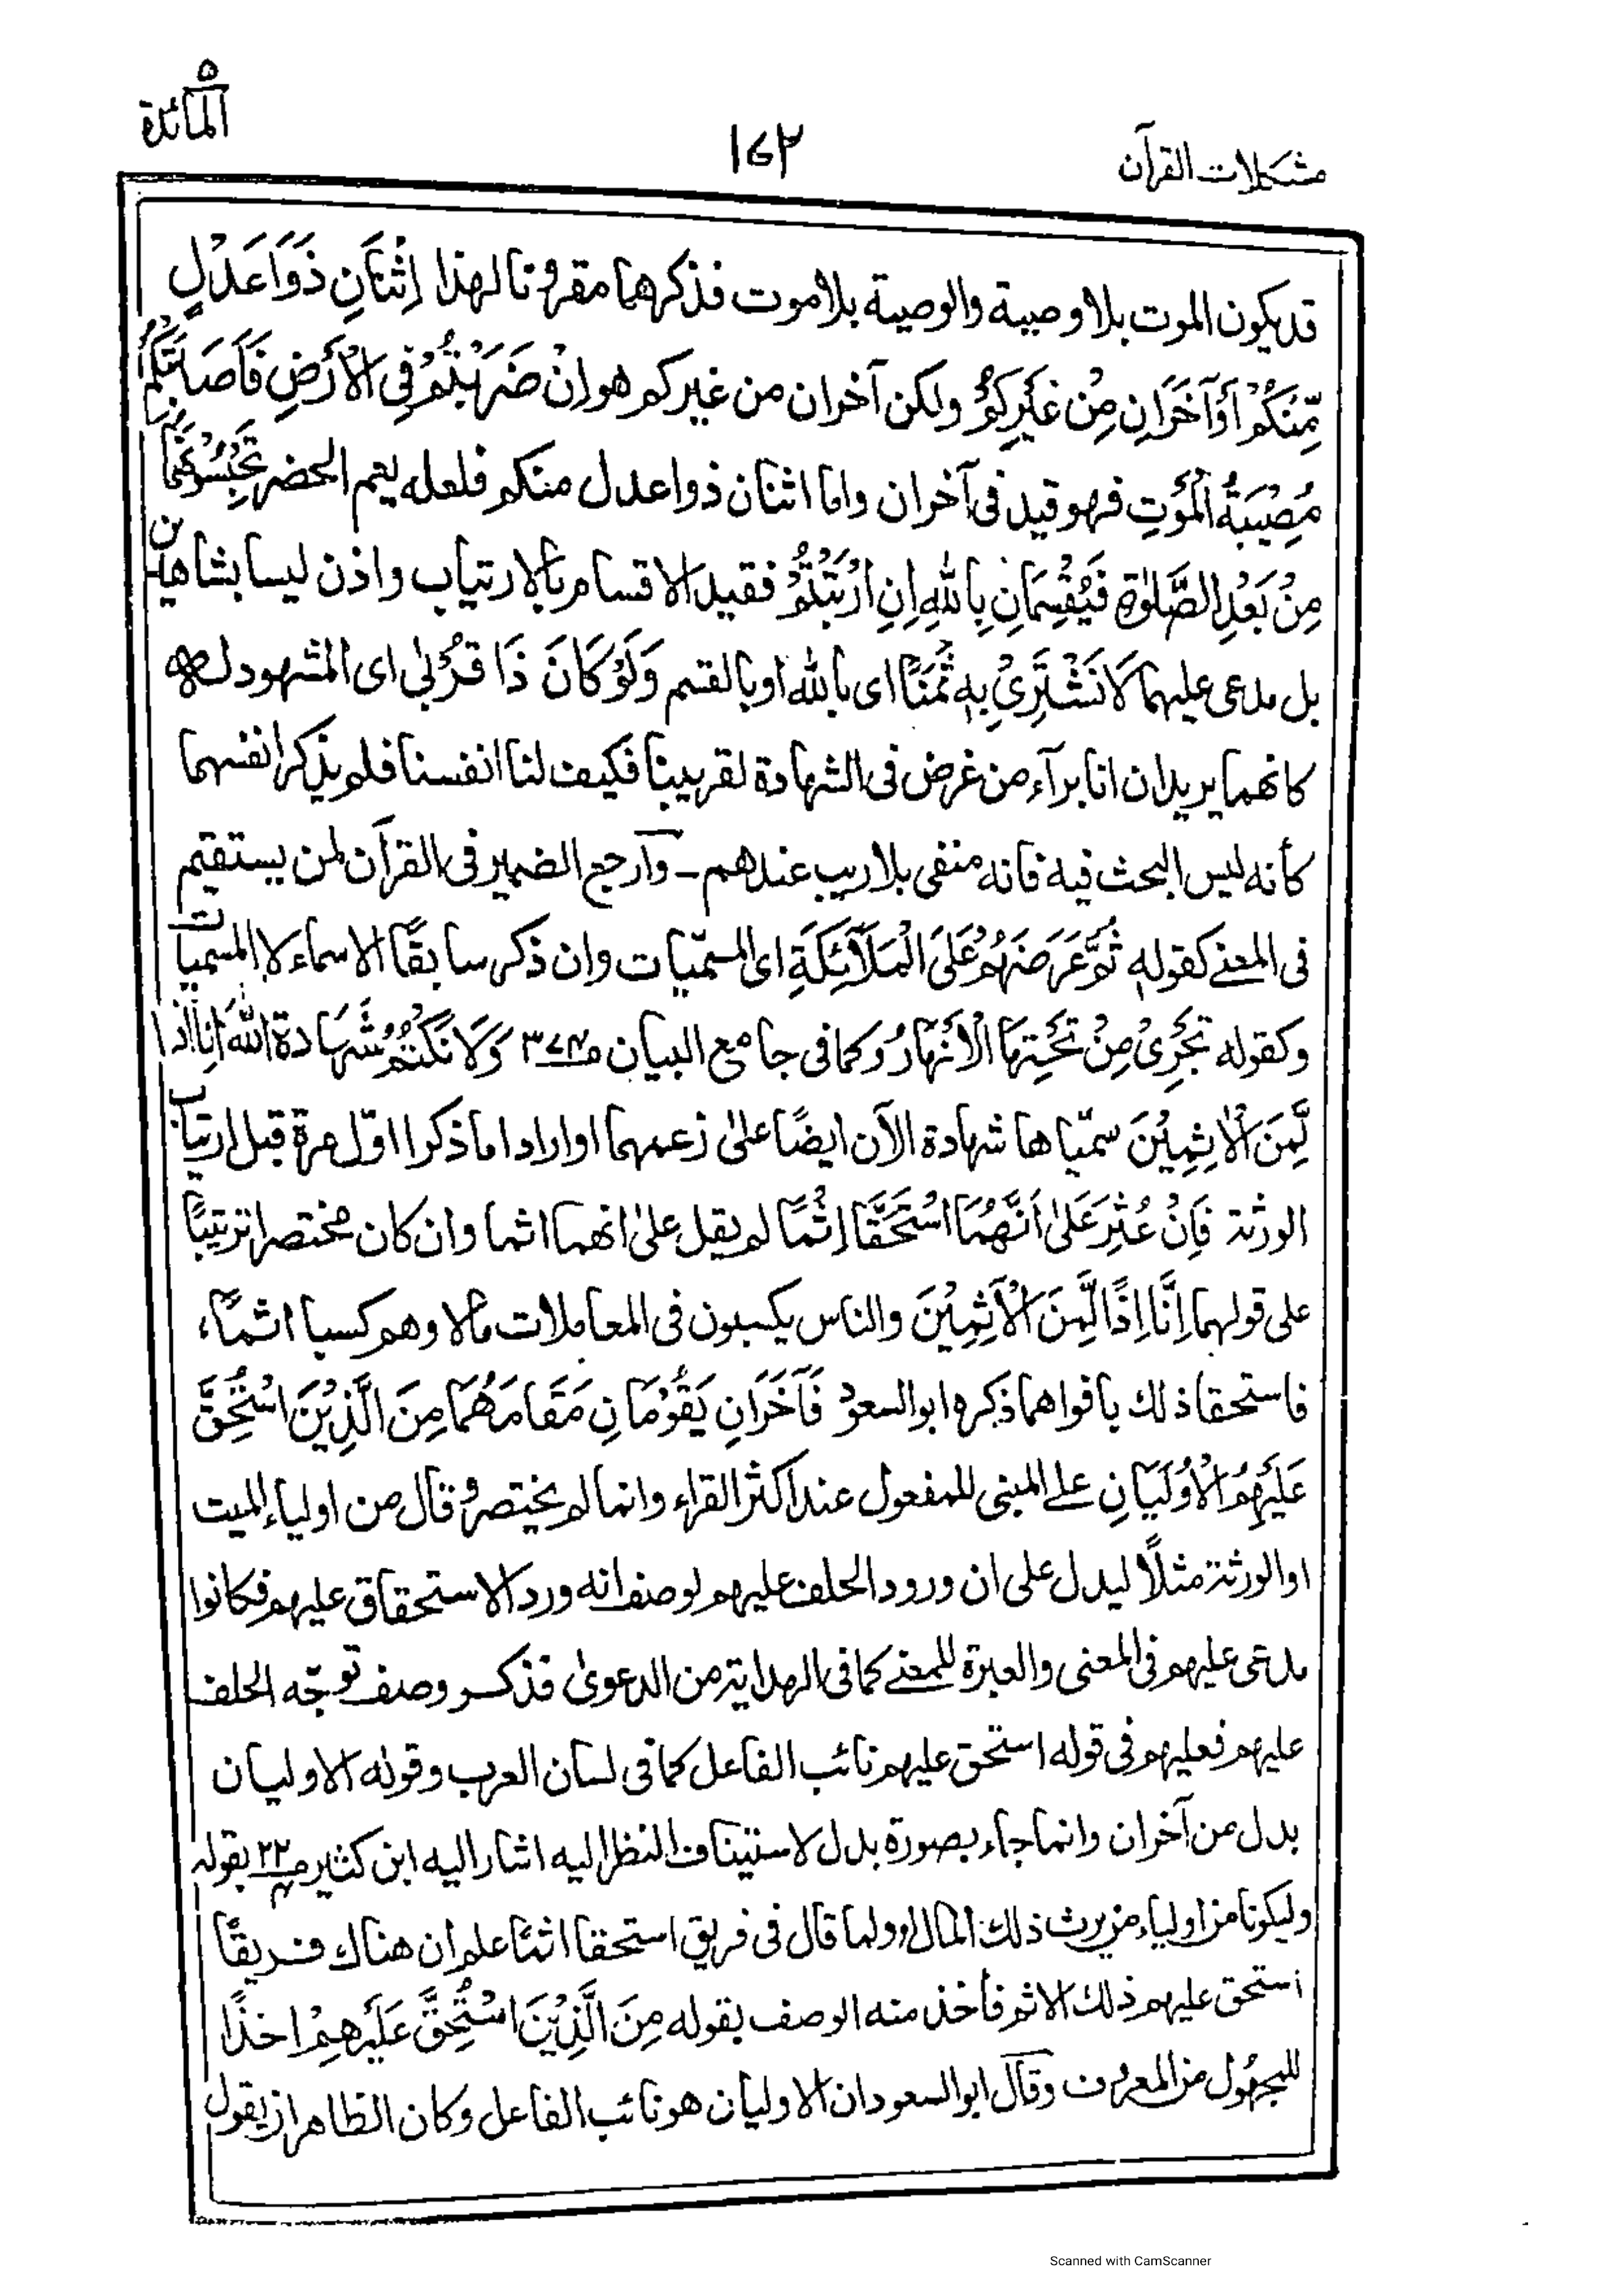 مشكلات القرآن
١٧٢
المائدة ٥
قد يكون الموت بلا وصية والوصية بلا موت فذكرهما مقرونا لهذا اِثْنَانِ ذَوَا عَدْلٍ
مِّنكُمْ أَوْ آخَرَانِ مِنْ غَيْرِكُمْ ولكن آخران من غيركم هو اِنْ ضَرَبْتُمْ فِى الْأَرْضِ فَأَصَابَتْكُمْ
مُصِيْبَةُ الْمَوْتِ فهو قيد فى آخران واما اثنان ذوا عدل منكم فلعله يعم الحضر تَحْبِسُوْنَهُمَا
مِنْ بَعْدِ الصَّلٰوةِ فَيُقْسِمَانِ بِاللهِ اِنِ ارْتَبْتُمْ فقيد الاقسام بالارتياب واذن ليسا بشاهدين
بل مدعى عليهما لَا نَشْتَرِىْ بِهٖ ثَمَنًا اى بالله او بالقسم وَلَوْ كَانَ ذَا قُرْبٰى اى المشهود له
كانهما يريدان انا برآء من غرض فى الشهادة لقريبنا فكيف لنا انفسنا فلم يذكرا انفسهما
كأنه ليس البحث فيه فانه منفى بلا ريب عندهم ـ وآرجع الضمير فى القرآن لمن يستقيم
فى المعنے كقولهٖ ثُمَّ عَرَضَهُمْ عَلَى الْمَلَآئِكَةِ اى المسمّيات وان ذكر سابقًا الاسماء لا المسميات
وكقوله تَجْرِىْ مِنْ تَحْتِهَا الْأَنْهَارُ وكما فى جامع البيان وَلَا نَكْتُمُ شَهَادَةَ اللهِ اِنَّا اِذًا
لَّمِنَ الْاٰثِمِيْنَ سمّياها شهادة الآن ايضًا على زعمهما او ارادا ما ذكرا اوّل مرة قبل ارتياب
الورثة فَاِنْ عُثِرَ عَلٰى اَنَّهُمَا اسْتَحَقَّا اِثْمًا لم يقل علىٰ انهما اثما وان كان مختصرا ترتيبًا
على قولهما اِنَّا اِذًا لَّمِنَ الْآثِمِيْنَ والناس يكسبون فى المعاملات مالا وهم كسبا اثمًا،
فاستحقا ذلك بافواهما ذكره ابو السعود فَآخَرَانِ يَقُوْمَانِ مَقَامَهُمَا مِنَ الَّذِيْنَ اسْتُحِقَّ
عَلَيْهِمُ الْاَوْلَيَانِ علے المبنى للمفعول عند اكثر القراء وانما لم يختصر وقال من اولياء الميت
او الورثة مثلًا ليدل على ان ورود الحلف عليهم لوصف انه ورد الاستحقاق عليهم فكانوا
مدعى عليهم فى المعنى والعبرة للمعنے كما فى الهداية من الدعوىٰ فذكر وصف توجّه الحلف
عليهم فعليهم فى قوله استحق عليهم نائب الفاعل كما فى لسان العرب وقوله الاوليان
بدل من آخران وانما جاء بصورة بدل لاستيناف النظر اليه اشار اليه ابن كثير بقوله
وليكونا من اولياء من يرث ذلك المال اه ولما قال فى فريق استحقا اثمًا علم ان هناك فريقًا
استحق عليهم ذلك الاثم فأخذ منه الوصف بقوله مِنَ الَّذِيْنَ اسْتُحِقَّ عَلَيْهِمْ اخذًا
للمجهول من المعروف وقال ابو السعود ان الاوليان هو نائب الفاعل وكان الظاهر ان يقول
Scanned with CamScanner